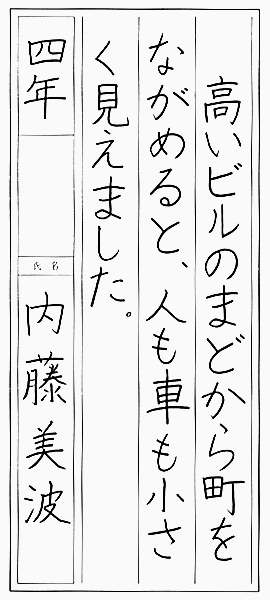 高いビルのまどから町を
ながめると、人も車も小さ
く見えました。
四年
氏名
内藤美波